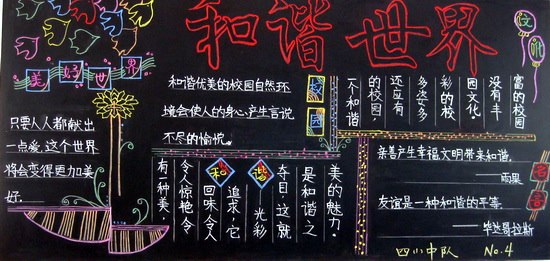 和谐世界
文化
美好世界
只要人人都献出
一点爱，这个世界
将会变得更加美
好……
和谐优美的校园自然环
境会使人的身心产生言说
不尽的愉悦。
校园
富的校园
没有丰
园文化
彩的校
多姿多
还应有
的校园，
一个和谐
美的魅力。
是和谐之
夺目，这就
谐——光彩
追求，它
和回味，令人
令人惊艳，令
有一种美，
亲善产生幸福，文明带来和谐。
——雨果
友谊是一种和谐的平等。
——毕达哥拉斯
名言
四小中队 No.4